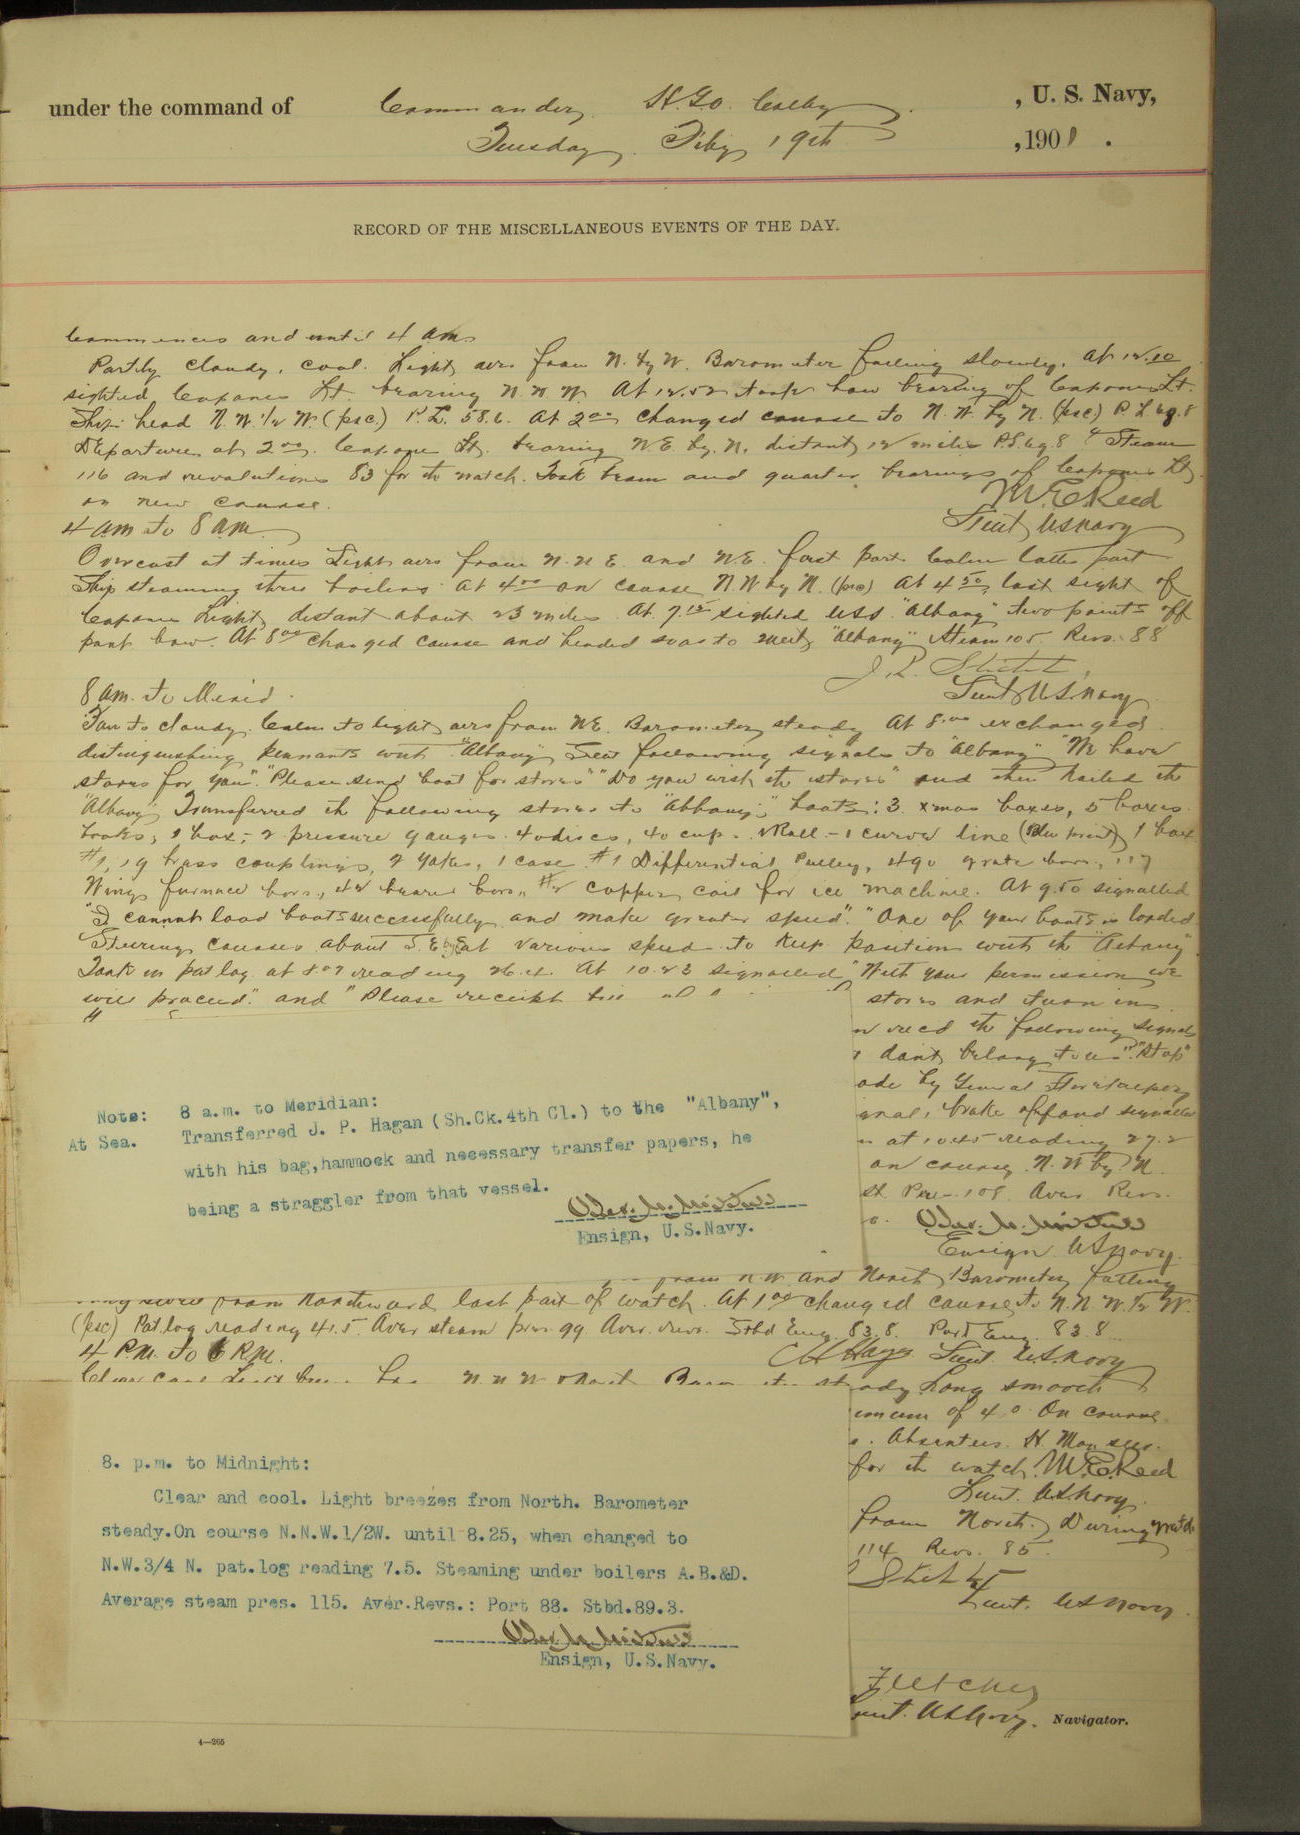 under the command of Commander H. Go. Colby , U. S. Navy,
Tuesday Feby 19th , 1901.
RECORD OF THE MISCELLANEOUS EVENTS OF THE DAY.
Commences and until 4 am
Partly cloudy, cool. Light airs from N. by W. Barometer falling slowly. At 12.10
sighted Capones Lt. bearing N.N.W. At 12.52 took bow bearing of Capones Lt.
Ship head N.W. 1/2 W. (psc) P.L. 58.6. At 2 00 changed course to N.W. by N. (psc) P.L.
Departure at 2 00. Capones Lt. bearing N.E. by N. distant 12 miles Steam
116 and revolutions 83 for the watch. Took beam and quarter bearings of Capones Lt.
on new course. W.E. Reed
4 am to 8 am. Lieut US Navy
Overcast at times Light airs from N.N.E. and N.E. first part Calm latter part
Ship steaming three boilers At 4 00 on course N.W. by N. (psc) At 4 50 lost sight of
Capones Light distant about 23 miles. At 7.15 sighted USS "Albany" two points off
port bow. At 8 00 changed course and headed so as to meet "Albany" Steam 105 Revs. 88
8 am. to Merid. Lieut U.S. Navy
Fair to cloudy. Calm to light airs from N.E. Barometer steady At 8.00 exchanged
distinguishing pennants with "Albany" Sent following signals to "Albany" "We have
stores for you". "Please send boat for stores" "Do you wish the stores" and then hailed the
"Albany" Transferred the following stores to "Albany's" boats: 3 xmas boxes, 5 boxes
books, 1 box - 2 pressure gauges 40 discs, 40 cups. 1 Roll - 1 curve line (Blue print) 1 box
#1, 19 brass couplings, 2 yokes, 1 case #1 Differential Pulley, 490 grate bars, 117
Wing furnace bars, 42 bearer bars, #2 copper coil for ice machine. At 9.50 signalled
"I cannot load boats successfully and make greater speed". "One of your boats is loaded
Steering courses about S.E. by E at various speeds to keep position with the "Albany"
Took in pat log at 8.07 reading 26.4. At 10.23 signalled "With your permission we
will proceed." and "Please receipt stores and turn in
rec'd the following signals
dont belong to us". "Stop"
ade by General Storekeeper
and signalled
at 10.45 reading 27.2
on course N.W by N.
Aver Revs.
Note: 8 a.m. to Meridian:
At Sea. Transferred J. P. Hagan (Sh.Ck.4th Cl.) to the "Albany",
with his bag,hammock and necessary transfer papers, he
being a straggler from that vessel.
Ensign, U.S.Navy.
Ensign US Navy.
from N.W. and North Barometer falling
from Northward last part of watch. At 1 00 changed course to N.N.W. 1/2 W.
(psc) Pat log reading 41.5 Aver steam pres 99 Aver. revs. Stbd Eng. 83.8. Port Eng. 83.8
4 P.M. to 6 P.M. Lieut. U.S. Navy
steady Long smooth
of 4°. On course
Absentees. H.
for the watch. W.E. Reed
Lieut. US Navy.
from North. During watch
114 Revs. 85.
Lieut. US Navy
8. p.m. to Midnight:
Clear and cool. Light breezes from North. Barometer
steady.On course N.N.W.1/2W. until 8.25, when changed to
N.W.3/4 N. pat.log reading 7.5. Steaming under boilers A.B.&D.
Average steam pres. 115. Aver.Revs.: Port 88. Stbd.89.3.
Ensign, U.S.Navy.
Fletcher
US Navy. Navigator.
4—265